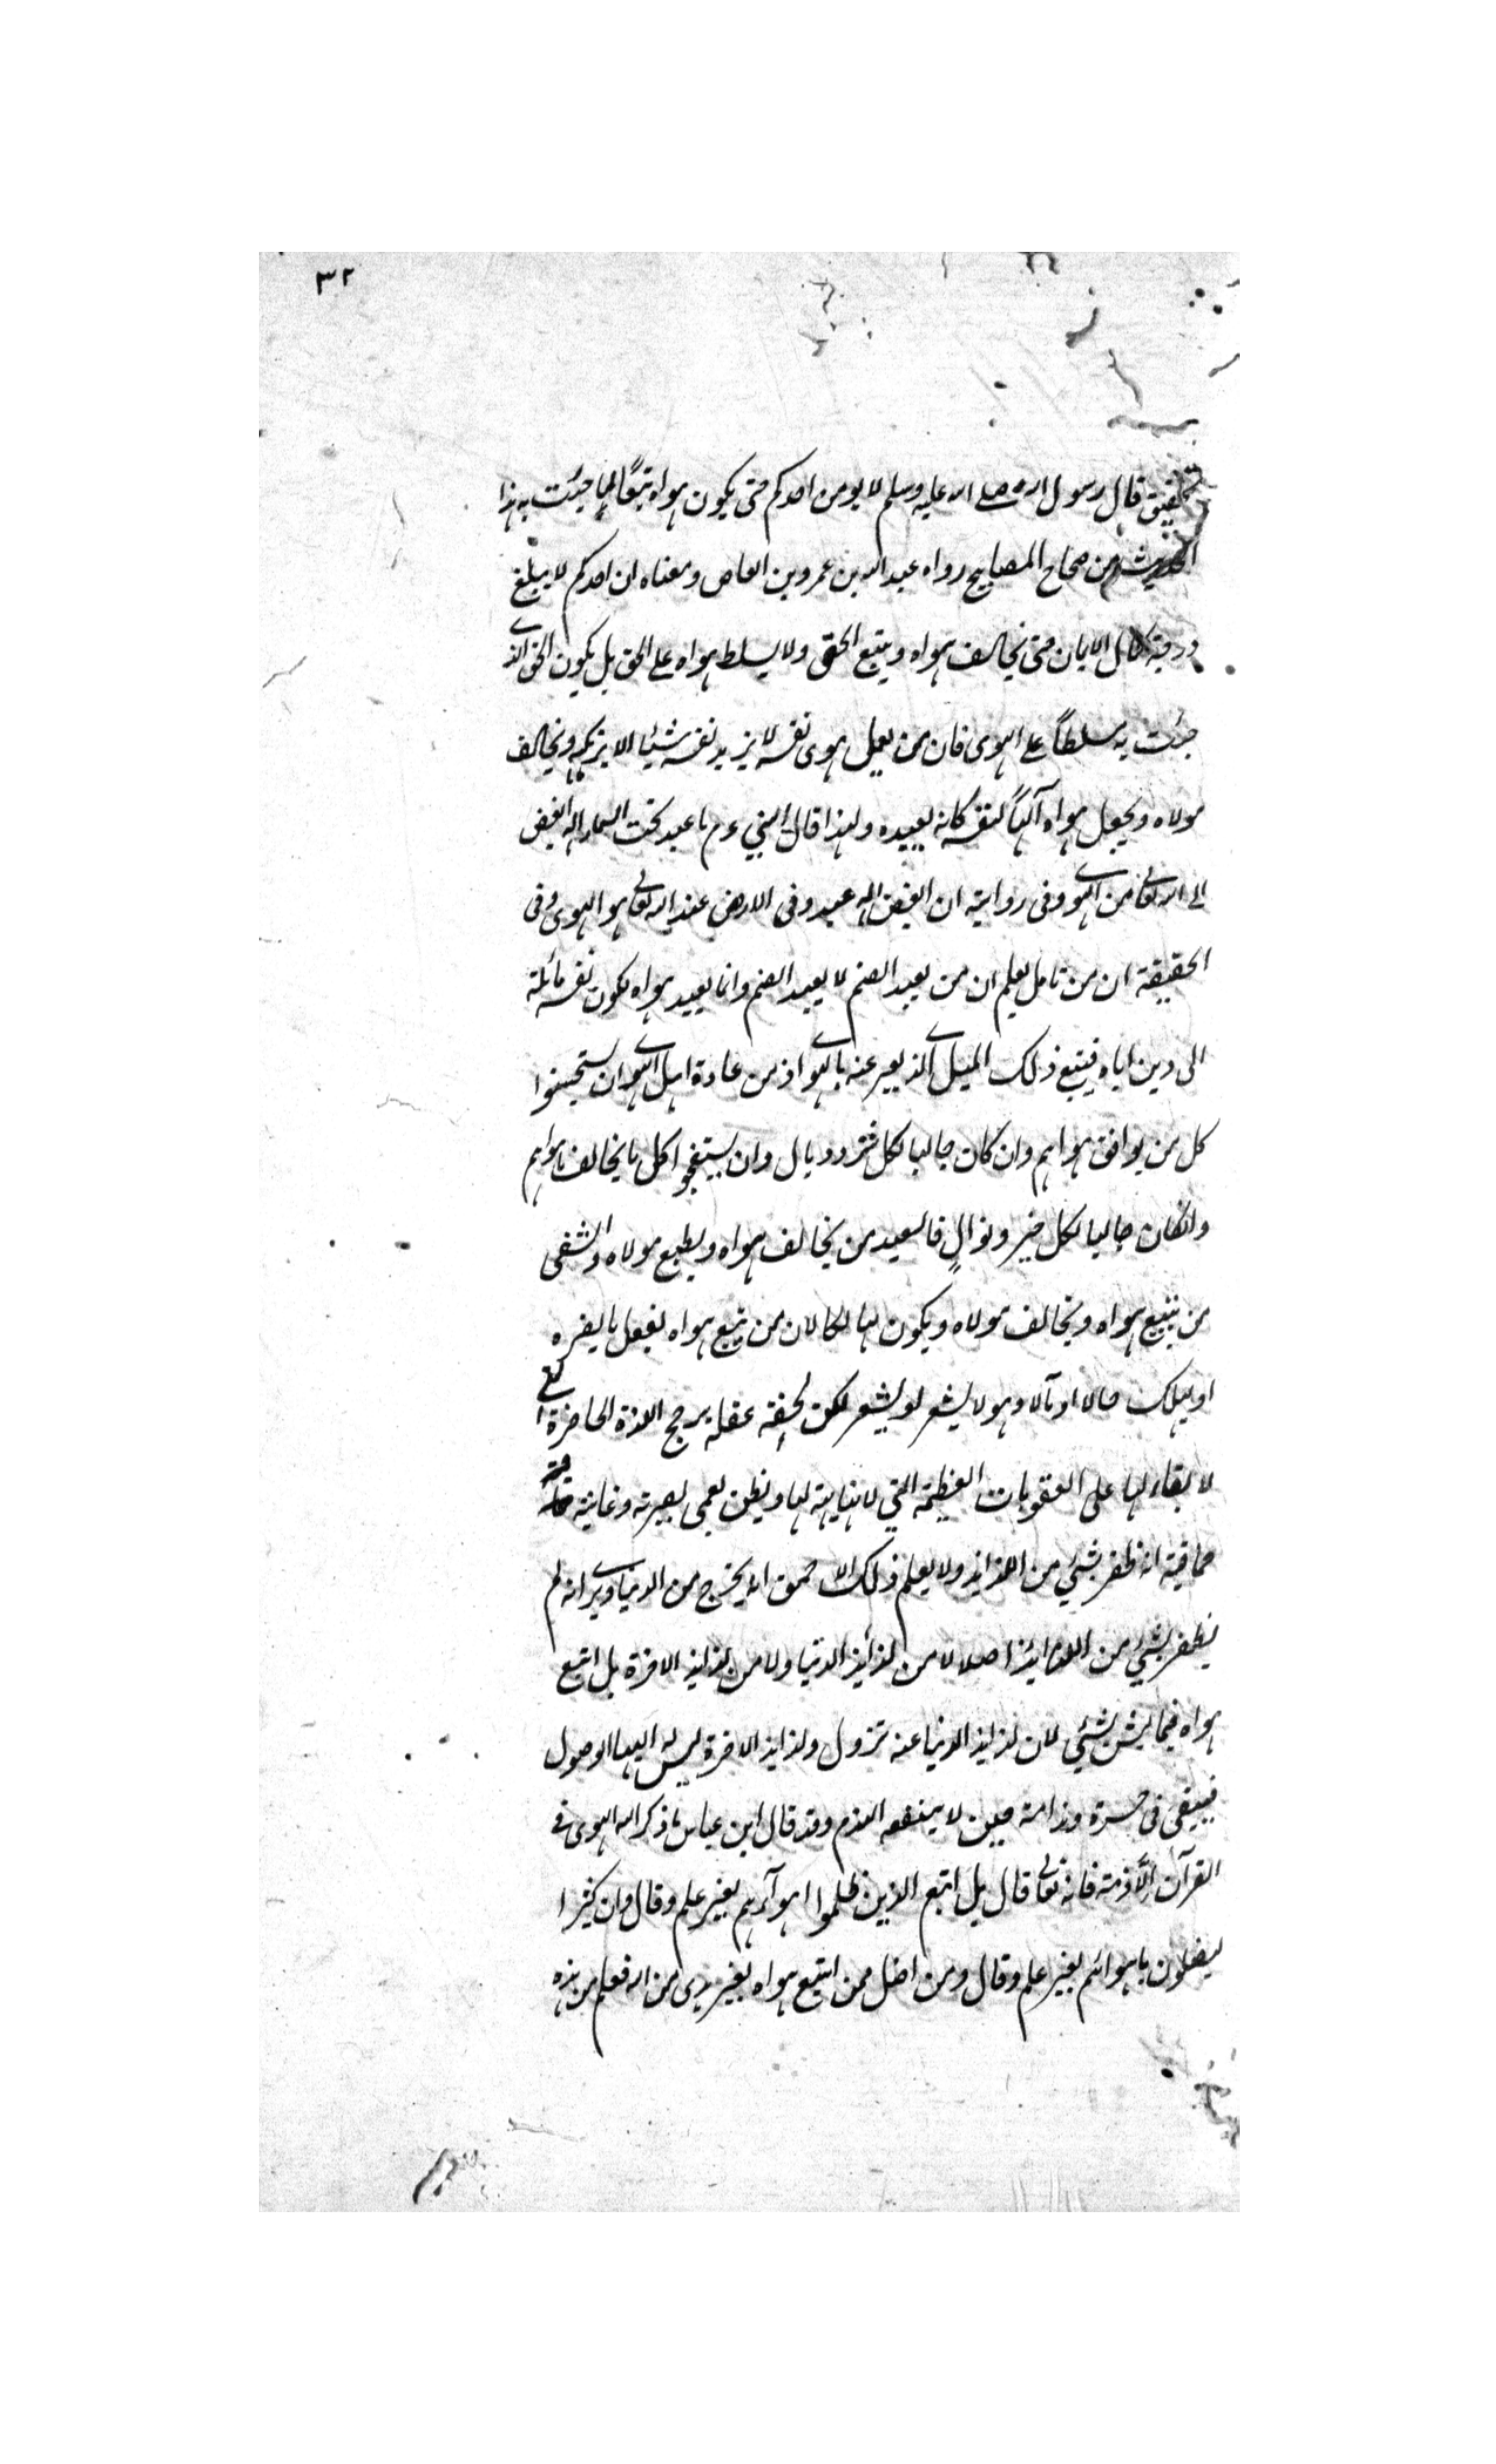 ٣٢
تحقيق قال رسول الله صلى الله عليه وسلم لا يومن احدكم حتى يكون هواه تبعًا لما جئت به هذا
الحديث من صحاح المصابيح رواه عبد الله بن عمرو بن العاص ومعناه ان احدكم لا يبلغ
درجة كمال الايمان حتى يخالف هواه ويتبع الحق ولا يسلط هواه على الحق بل يكون الحق الذى
جئت به مسلطاً على الهوى فان من يعمل هوى نفسه لا يزيد نفسه شيئا الا يزكيه ويخالف
مولاه ويجعل هواه آلهاً لنفسه كانه يعبده ولهذا قال النبي ءم ما عبد تحت السماء اله ابغض
الى الله تعالى من الهوى وفى رواية ان ابغض اله عبد وفى الارض عند الله تعالى هو الهوى وفى
الحقيقة ان من تامل يعلم ان من يعبد الصنم لا يعبد الصنم وانما يعبد هواه لكون نفسه مائلة
الى دين اباه فيتبع ذلك الميل الذى يعبر عنه بالهوى اذ من عادة اهل الهوى ان يستحسنوا
كل من يوافق هواهم وان كان جالبا لكل شر ووبال وان يستقبحوا كل ما يخالف هواهم
وانكان جالبا لكل خير ونوالٍ فالسعيد من يخالف هواه ويطيع مولاه والشقى
من يتبع هواه ويخالف مولاه ويكون لها لكا لان من يتبع هواه يفعل ما يضره
او يهلك حالا او مآلا وهو لا يشعر او يشعر لكن لخفة عقله يرجح اللذة الحاضرة التى
لا بقاء لها على العقوبات العظيمة التي لا نهاية لها ويظن لعمى بصيرته وغاية
حماقته انه ظفر بشئ من اللذايذ ولا يعلم ذلك الاحمق انه يخرج من الدنيا ويرى انه لم
يظفر بشئ من اللذايذ اصلا لا من لذائذ الدنيا ولا من لذايذ الاخرة بل اتبع
هواه فيما ليس بشئ لان لذايذ الدنيا عنه تزول ولذايذ الاخرة ليس له اليها الوصول
فيبقى فى حسرة وندامة حين لا ينفعه الندم وقد قال ابن عباس ما ذكر الله الهوى فى
القرآن الّا ذمه فانه تعالى قال بل اتبع الذين ظلموا اهوآءهم بغير علم وقال وان كثيرا
ليضلون باهوائهم بغير علم وقال ومن اضل ممن اتبع هواه بغير هدى من الله فعلم من هذه